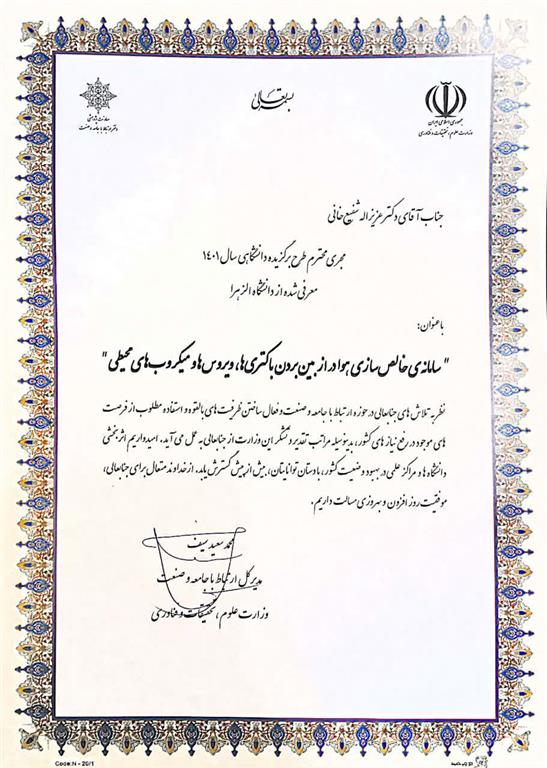 بسمه تعالی
جمهوری اسلامی ایران
وزارت علوم، تحقیقات و فناوری
معاونت پژوهشی
دفتر ارتباط با جامعه و صنعت
جناب آقای دکتر عزیزاله شفیع خانی
مجری محترم طرح برگزیده دانشگاهی سال ۱۴۰۱
معرفی شده از دانشگاه الزهرا
با عنوان:
" سامانه‌ی خالص سازی هوا در از بین بردن باکتری‌ها، ویروس‌ها و میکروب‌های محیطی "
نظر به تلاش‌های جنابعالی در حوزه ارتباط با جامعه و صنعت و فعال ساختن ظرفیت‌های بالقوه و استفاده مطلوب از فرصت
های موجود در رفع نیازهای کشور، بدینوسیله مراتب تقدیر و تشکر این وزارت از جنابعالی به عمل می آید. امید داریم اثربخشی
دانشگاه‌ها و مراکز علمی در بهبود وضعیت کشور، با دستان توانایتان، بیش از پیش گسترش یابد. از خداوند متعال برای جنابعالی،
موفقیت روز افزون و بهروزی مسالت داریم.
محمد سعید سیف
مدیر کل ارتباط با جامعه و صنعت
وزارت علوم، تحقیقات و فناوری
Code:N - 20/1